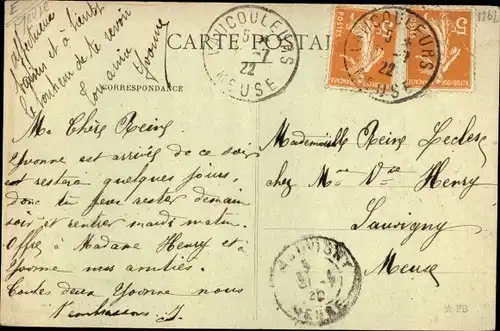 Meuse
affectueux
baisers et à bientôt
le bonheur de te revoir
Ton amie
Yvonne
CARTE POSTALE
CORRESPONDANCE
VAUCOULEURS
5 -7
22
MEUSE
VAUCOULEURS
5 -7
22
MEUSE
POSTES
5c
RÉPUBLIQUE FRANÇAISE
5c
Ma Chère Reine
Yvonne est arrivée de ce soir
et restera quelques jours,
donc tu peux rester demain
soir et rentrer mardi matin.
Offre à Madame Henry et à
Yvonne mes amitiés.
Toutes deux Yvonne nous
t'embrassons
Mademoiselle Reine Leclerc
chez Mme Vve Henry
Sauvigny
Meuse
SAUVIGNY
22
MEUSE